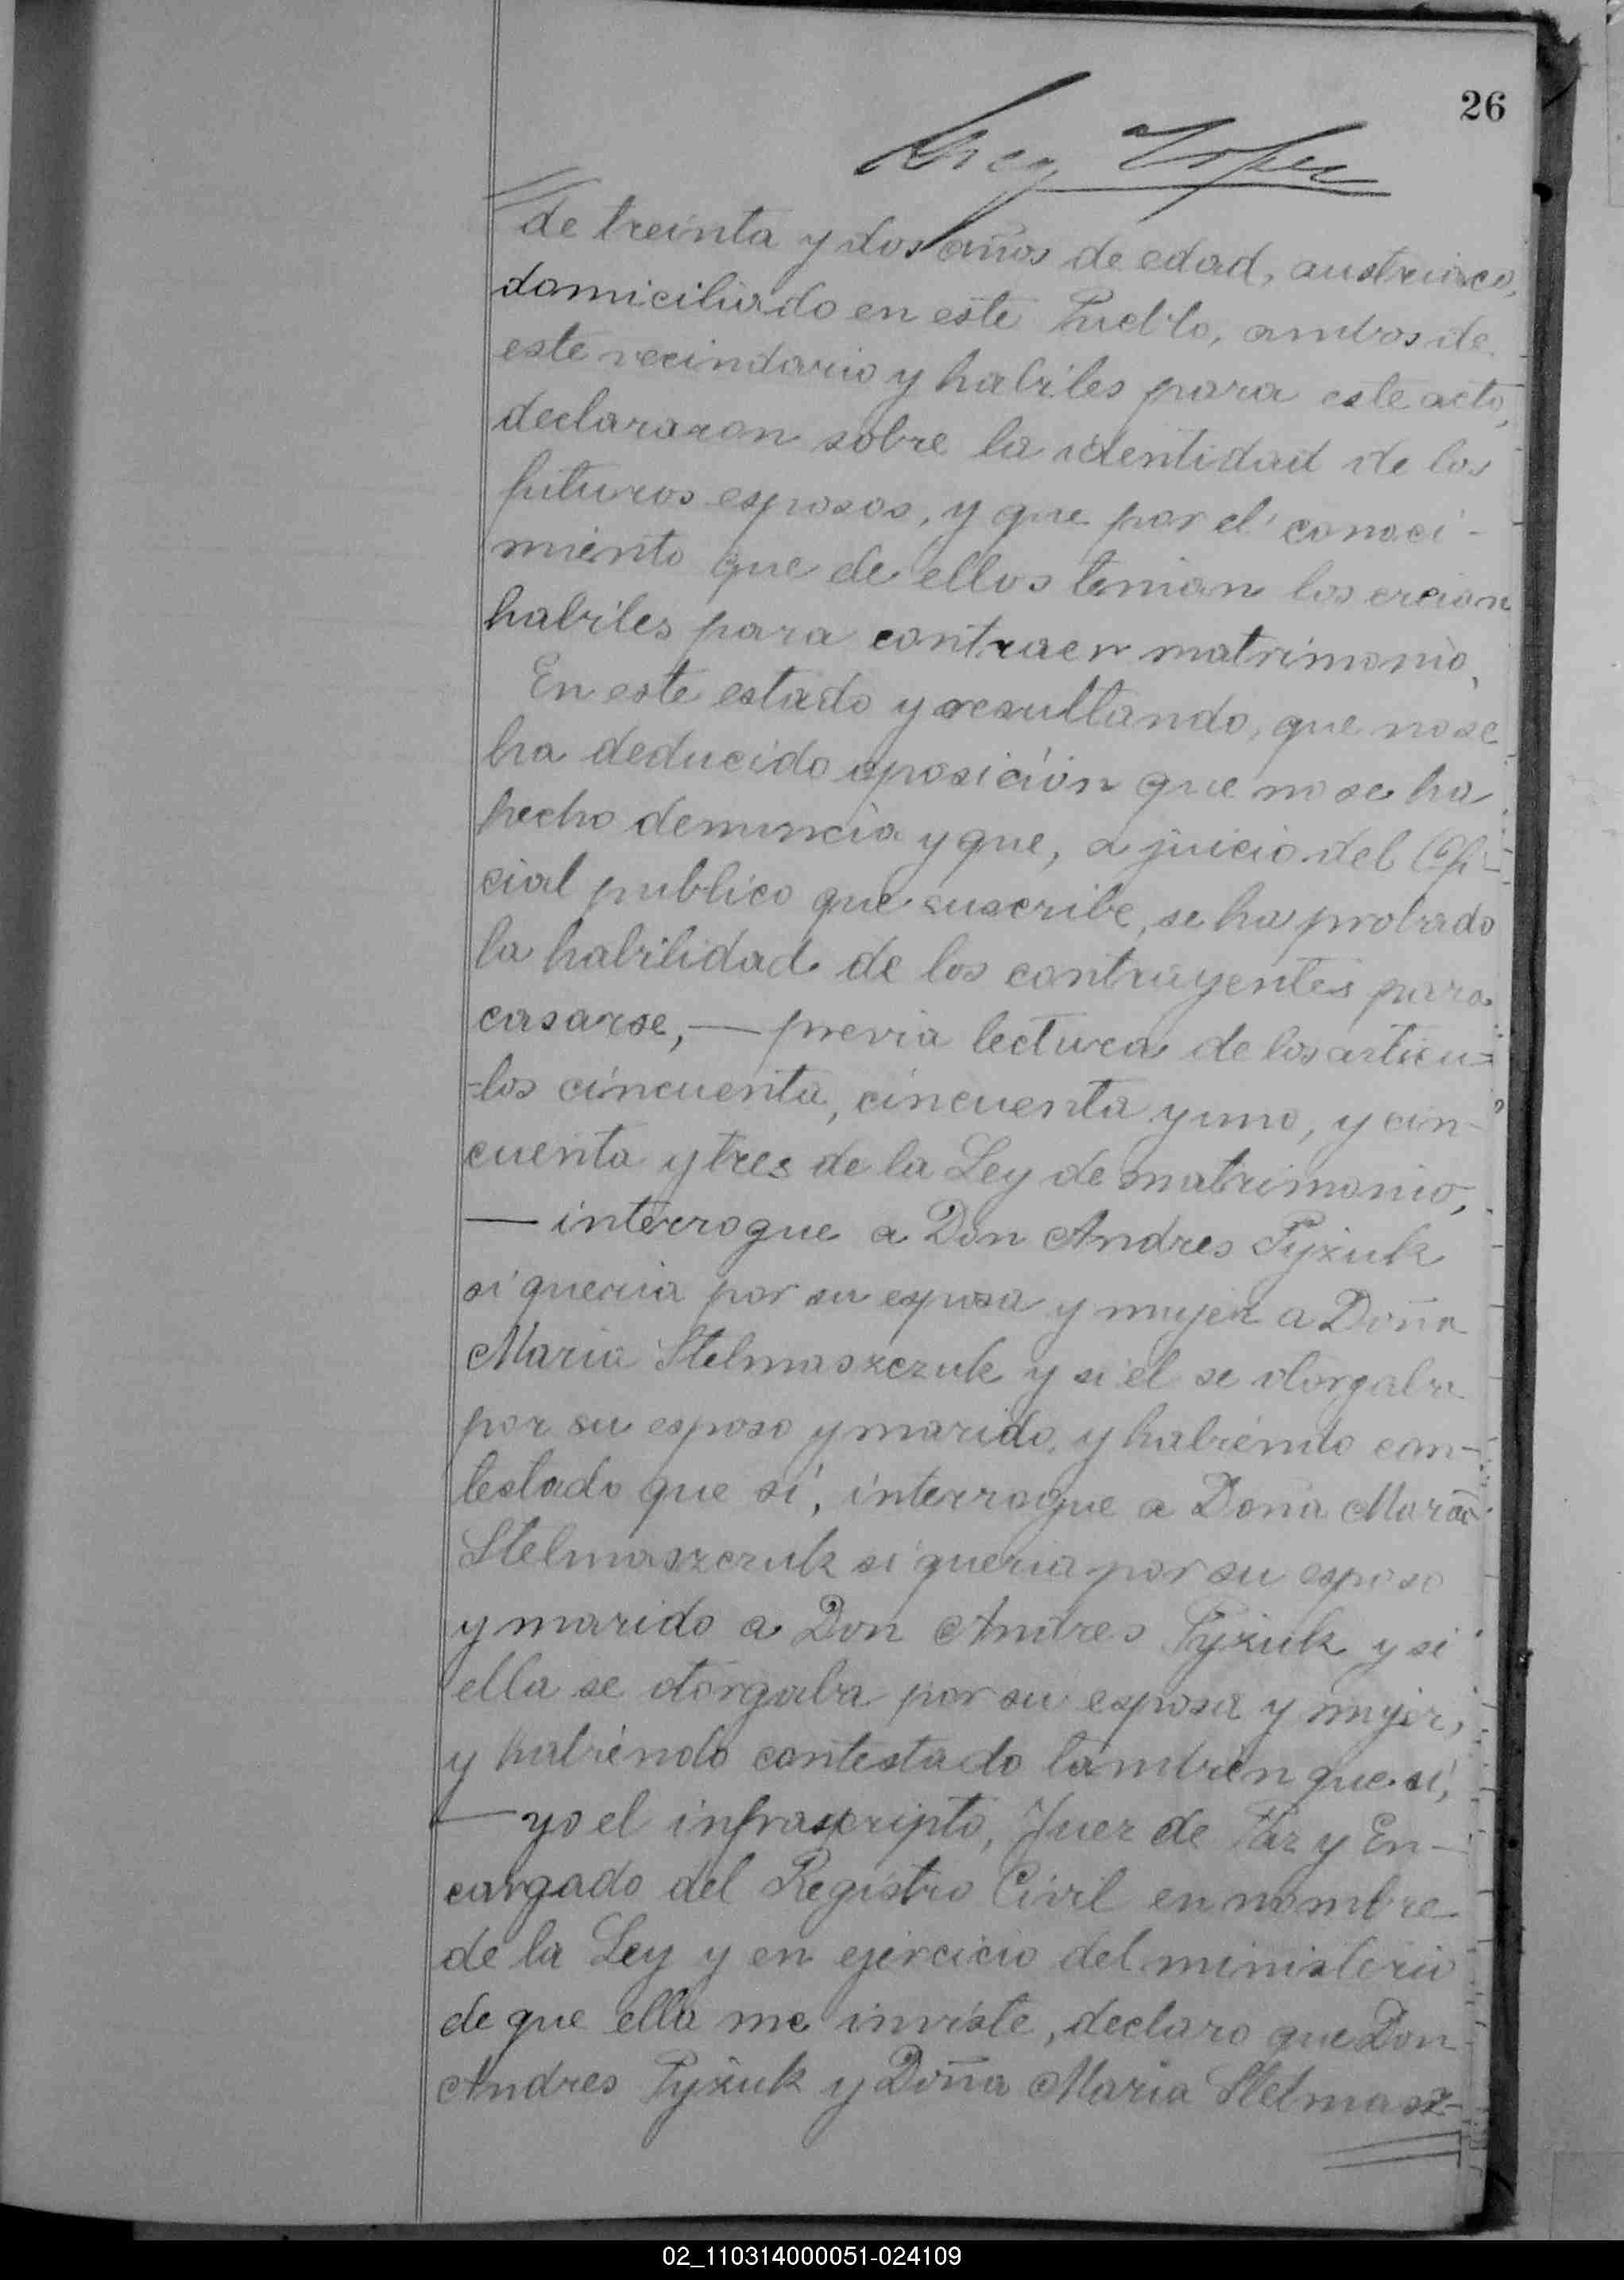 26
Greg Lopez
de treinta y dos años de edad, austriaco,
domiciliado en este Pueblo, ambos de
este vecindario y habiles para este acto,
declararon sobre la identidad de los
futuros esposos, y que por el conoci-
miento que de ellos tenian los creian
habiles para contraer matrimonio,
En este estado y resultando, que no se
ha deducido oposición que no se ha
hecho denuncia y que, a juicio del Ofi-
cial publico que suscribe, se ha probado
la habilidad de los contrayentes para
casarse,— previa lectura de los articu-
-los cincuenta, cincuenta y uno, y cin-
cuenta y tres de la Ley de matrimonio,
— interrogue a Don Andres Pyzuk
si queria por su esposa y mujer a Doña
Maria Stelmaszczuk y si el se otorgaba
por su esposo y marido, y habiendo con-
testado que si, interrogue a Doña Maria
Stelmaszczuk si queria por su esposo
y marido a Don Andres Pyzuk y si
ella se otorgaba por su esposa y mujer,
y habiendo contestado tambien que si,
— yo el infrascripto, Juez de Paz y En-
cargado del Registro Civil en nombre
de la Ley y en ejercicio del ministerio
de que ella me inviste, declaro que Don
Andres Pyzuk y Doña Maria Stelmasz-
02_110314000051-024109